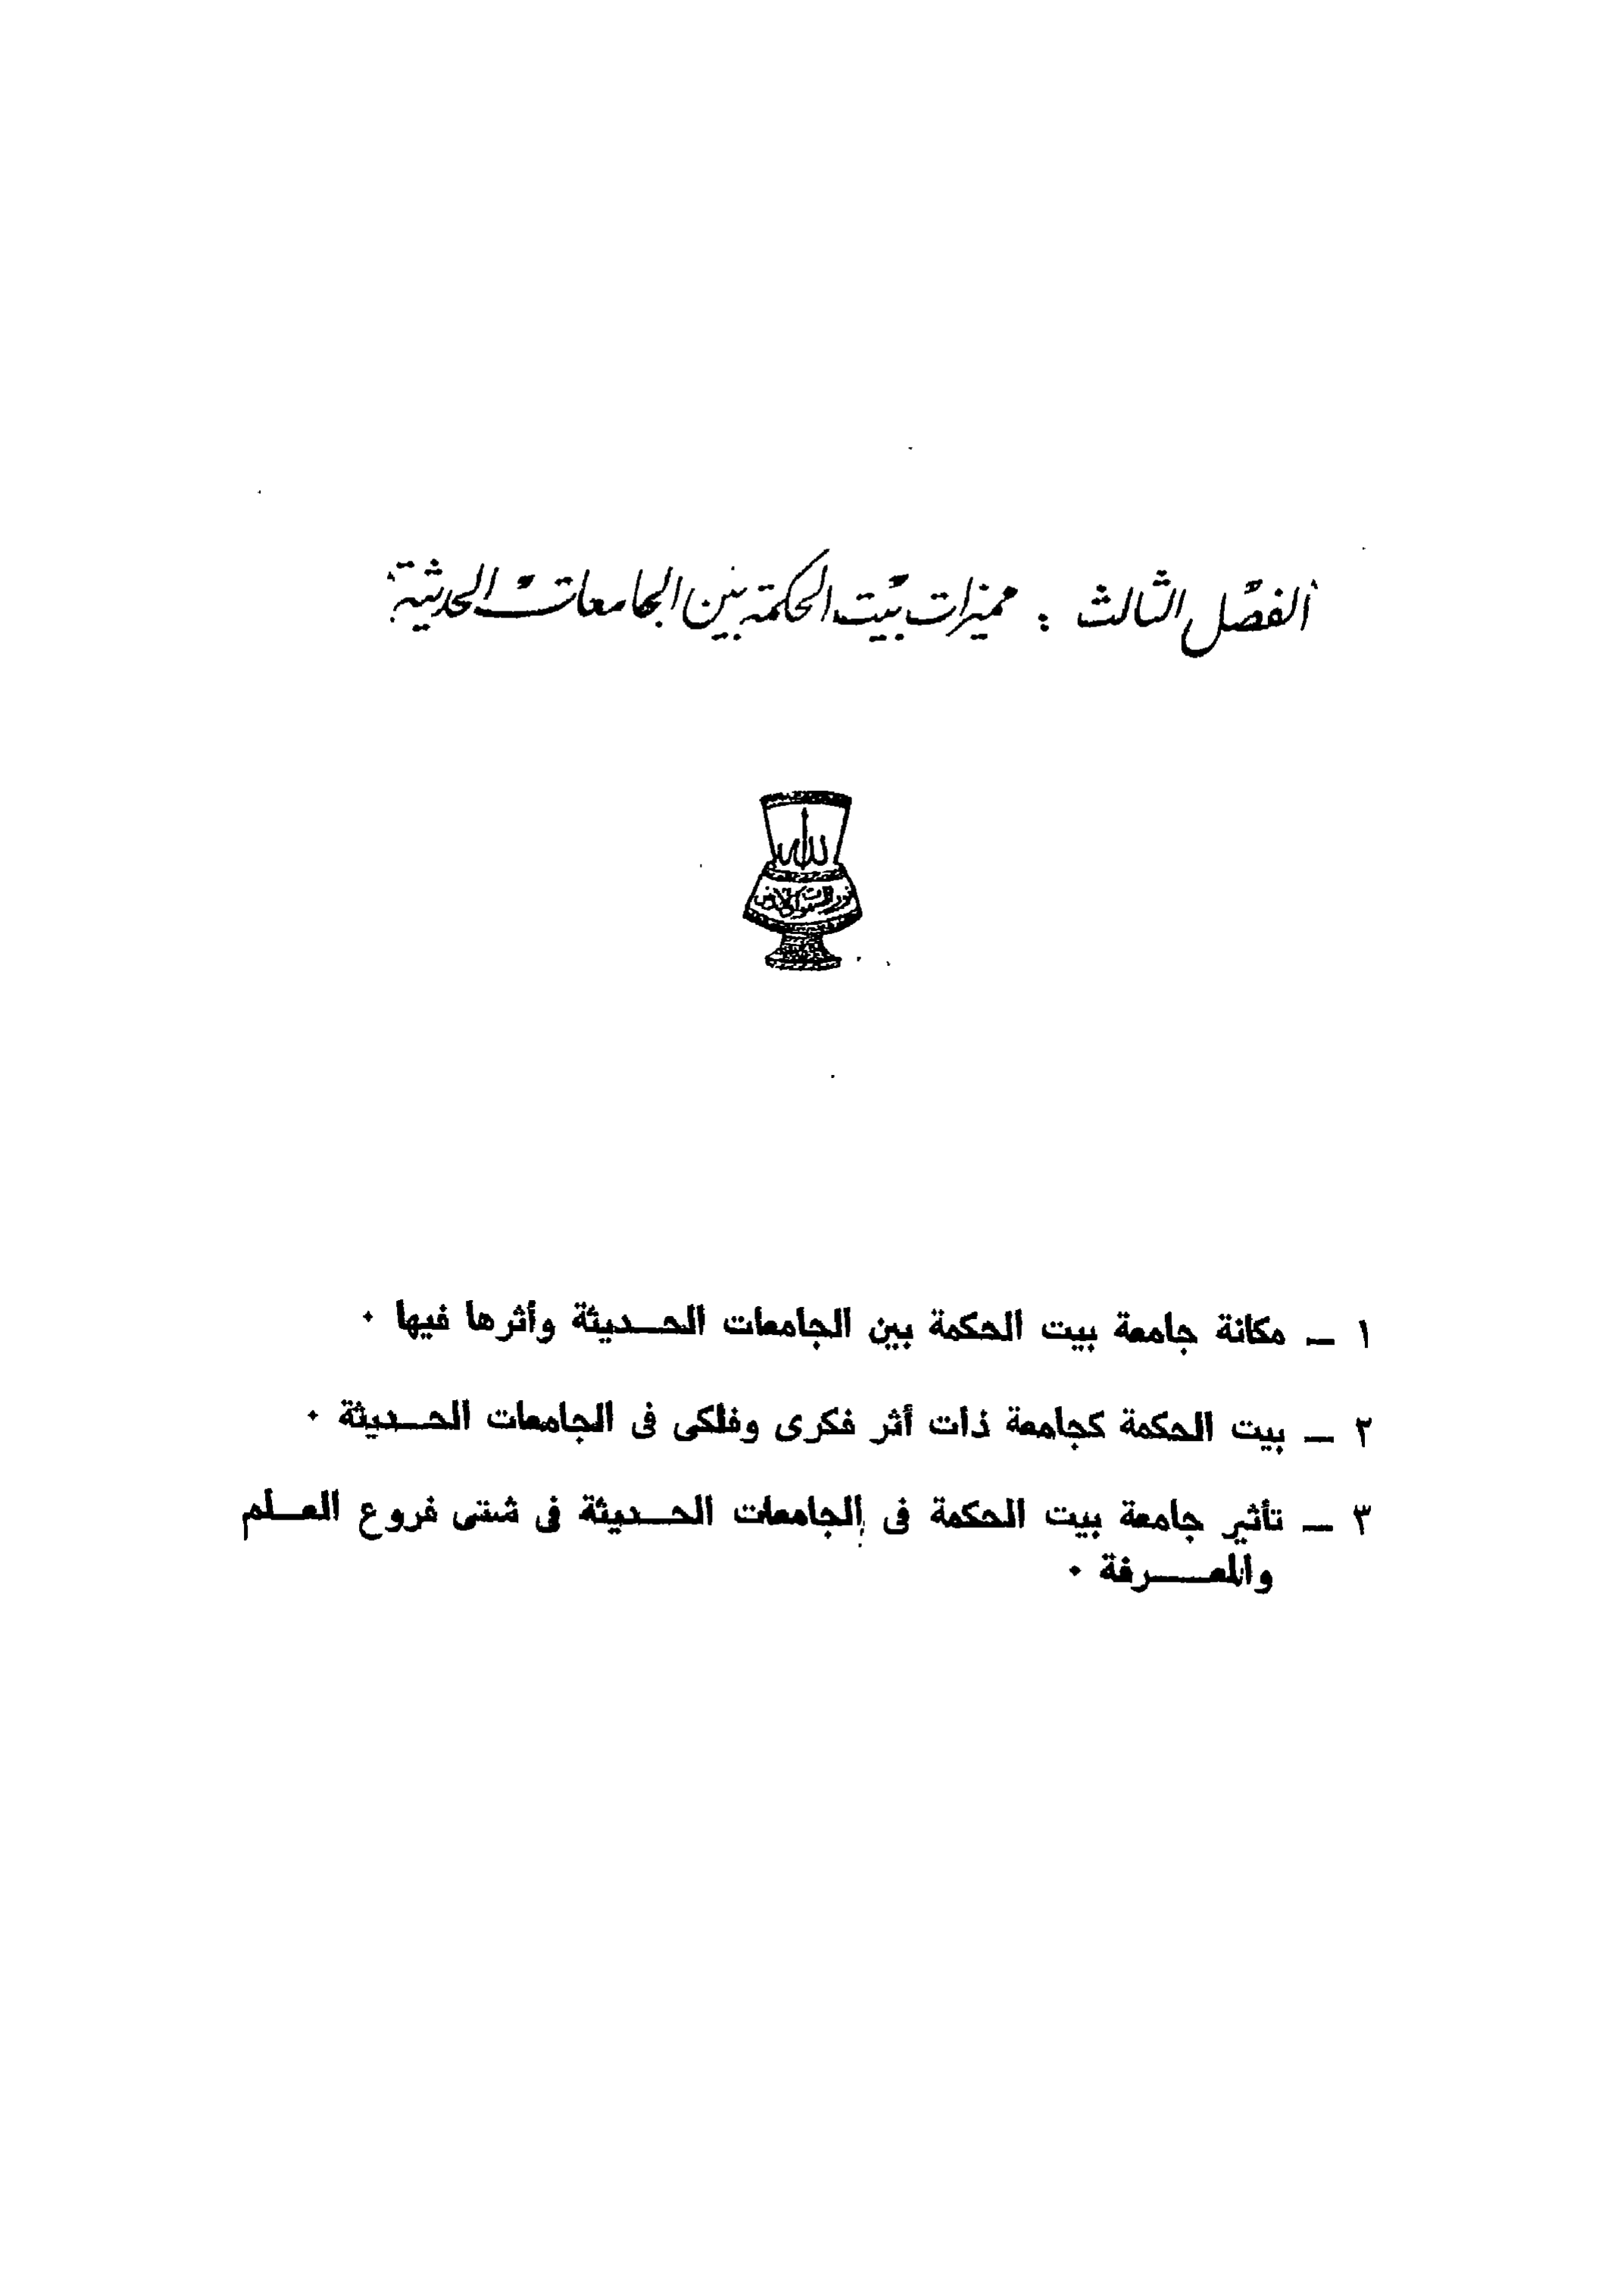 الفصل الثالث : مميزات بيت الحكمة بين الجامعات الحديثة
الله
نور السموات والأرض
١ — مكانة جامعة بيت الحكمة بين الجامعات الحديثة وأثرها فيها .
٢ — بيت الحكمة كجامعة ذات أثر فكرى وفلكى فى الجامعات الحديثة .
٣ — تأثير جامعة بيت الحكمة فى الجامعات الحديثة فى شتى فروع العلم
والمعرفة .